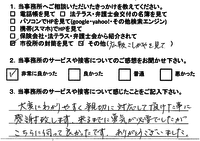 1. 当事務所へご相談いただいたきっかけを教えてください。
□ 電話帳を見て □ 法テラス・弁護士会交付の名簿を見て
□ パソコンでHPを見て(google・yahoo!・その他検索エンジン)
□ 携帯(スマホ)でHPを見て
□ 保険会社・法テラス・弁護士会から紹介されて
☑ 市役所の封筒を見て ☑ その他(
2. 当事務所のサービスや接客についてのご感想をお聞かせ下さい。
☑ 非常に良かった 良かった 普通 悪かった
3. 当事務所のサービスや接客について感じたことをご記入下さい。
大変にわかりやすく親切に対応して頂けた事に
感謝致します。来るまでに勇気が必要でしたが
こちらに伺って良かったです。ありがとうございました。